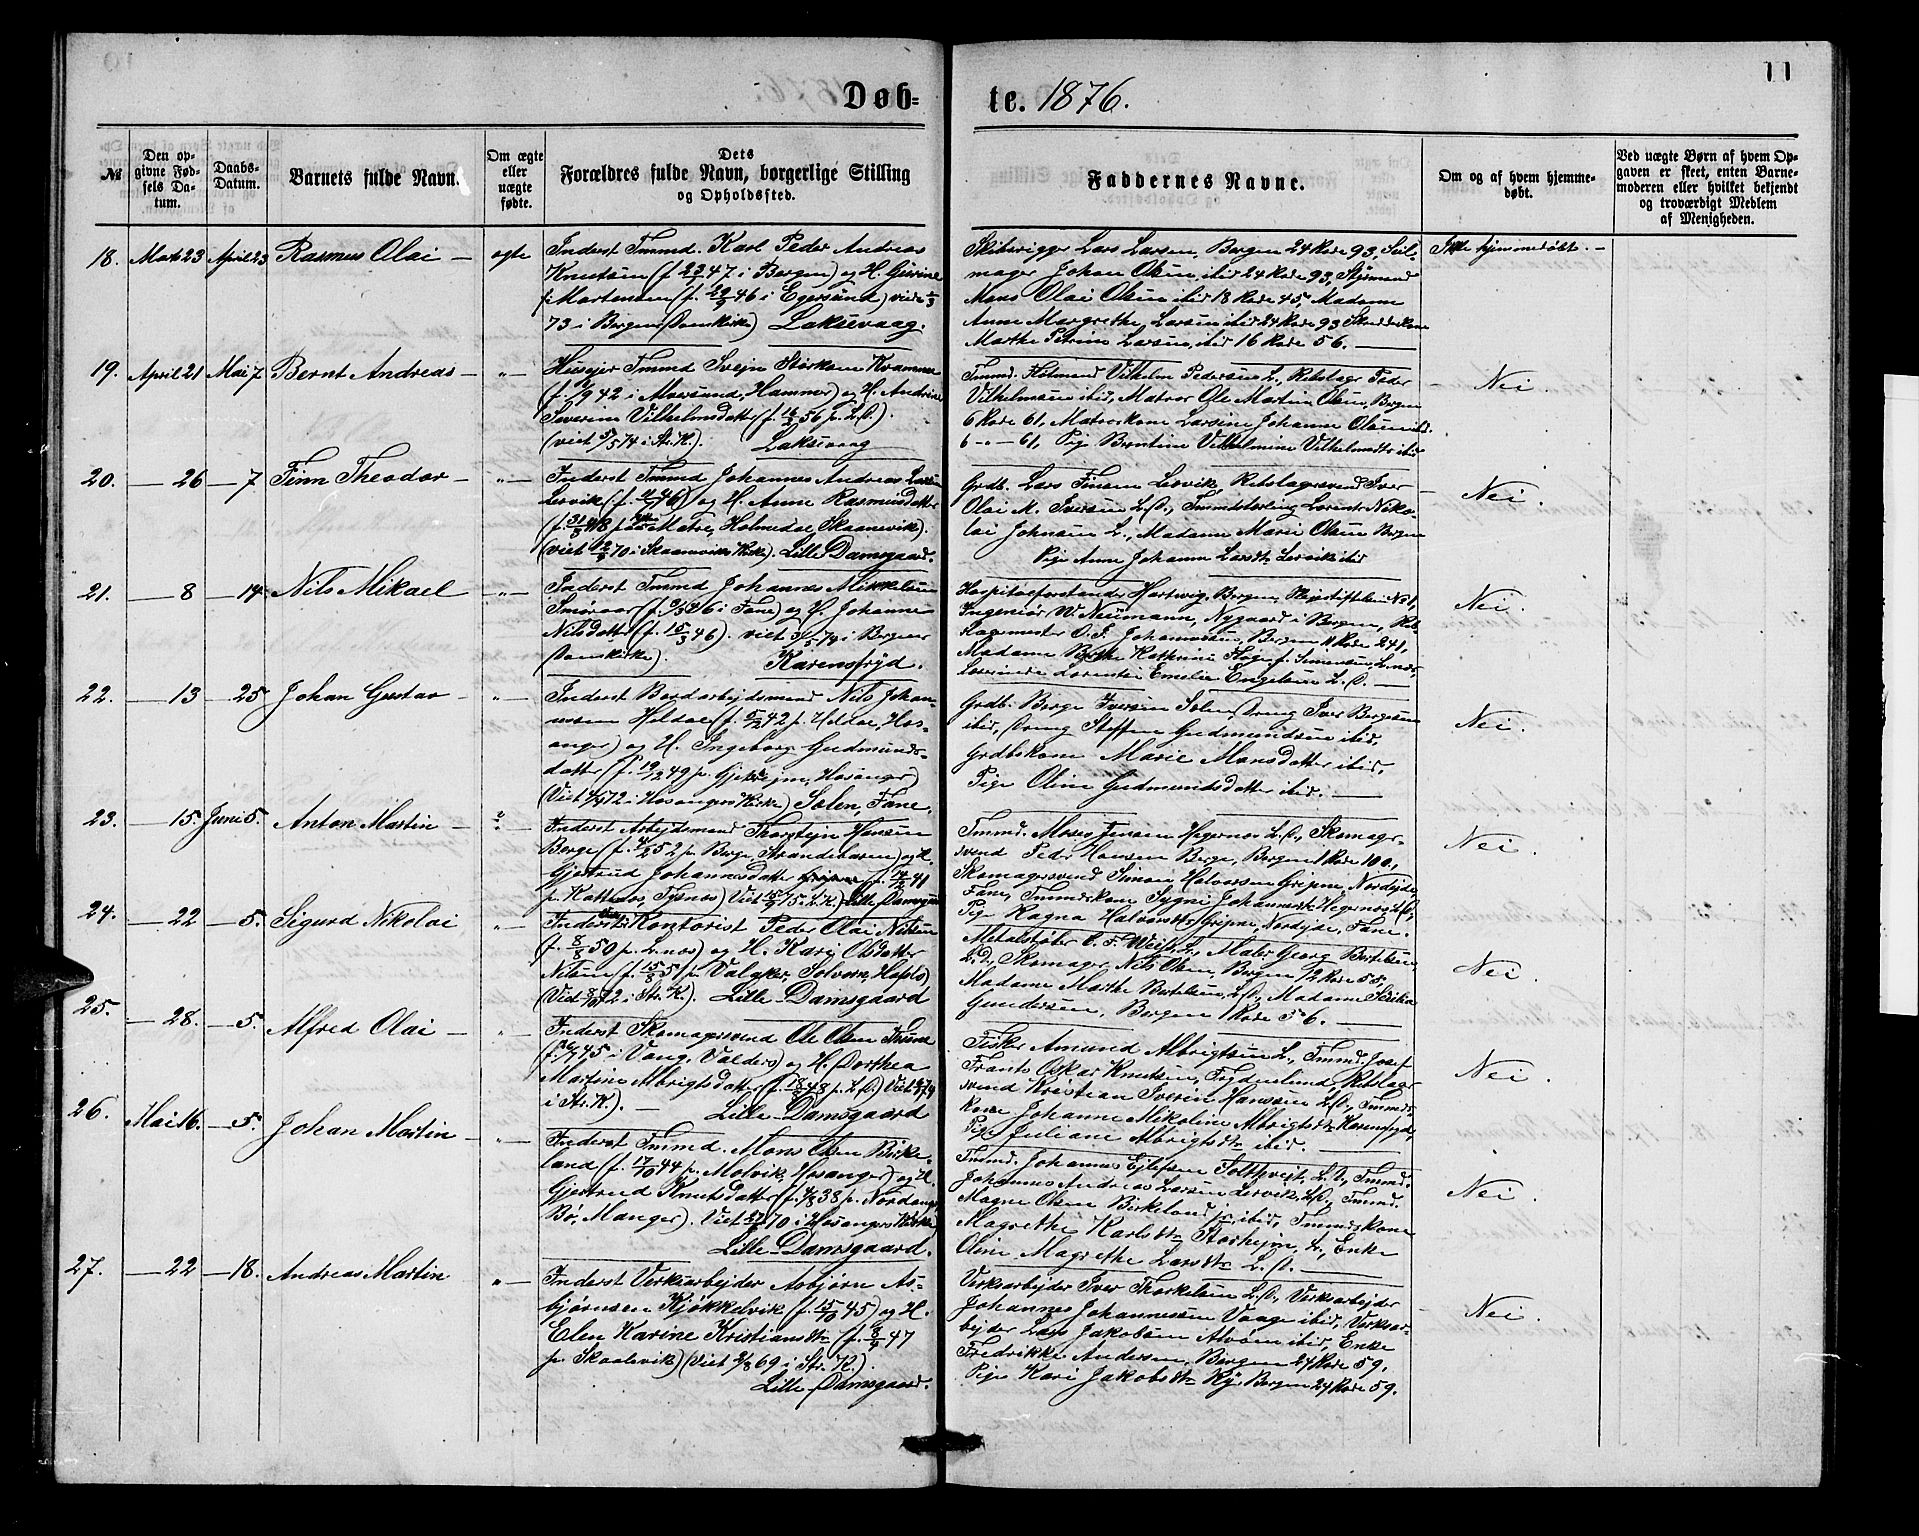 11
Døb-
te. 1876.
№
Den op-
givne Fød-
sels Da-
tum.
Daabs-
Datum.
Barnets fulde Navn.
Om ægte
eller
uægte
fødte.
Dets
Forældres fulde Navn, borgerlige Stilling
og Opholdssted.
Faddernes Navne.
Om og af hvem hjemme-
døbt.
Ved uægte Børn af hvem Op-
gaven er skeet, enten Barne-
moderen eller hvilket bekjendt
og troværdigt Medlem
af Menigheden.
18. Marts 23 April 23 Rasmus Olai — ægte
Inderst Tmmd. Karl Peder Andreas
Knutsen (f. 47 i Bergen) og H.
Martensen (f. 46 i Egersund) viede
73 i Bergens Domkirke) Laksevaag.
Skibsrigger Lars Larsen, Bergen 24 Rode 93, Seil-
mager Johan Olsen, ibid 24 Rode 93, Styrmand
Mons Olai Olsen ibid 18 Rode 45, Madame
Anne Margrethe Larsen ibid 24 Rode 93
Marthe Petrine Larsen, ibid 16 Rode 56. —
Ikke hjemmedøbt. —
19. April 21 Mai 7. Bernt Andreas — " —
Huseier Tmmd Svejn Størksen Kvamme
(f. 42 i Alversund, Hammer) og H. Andrine
Severine Vilhelmsdatter (f. 16 56 p. L.D.).
(viet 5/5 74 i Str. K.). Laksevaag
Tmmd. Vilhelm Pedersen L., Rebslager Peder
Vilhelmsen ibid, Matros Ole Martin Olsen, Bergen
6 Rode 61, Matroskone Larsine Johanne Olsen ibid
6 — " — 61, Pige Berntine Vilhelmine Vilhelmsdtr ibid
Nei.
20. — 26 — 7. Finn Theodor — " —
Inderst Tmmd Johannes Andreas Larsen
Lervik (f. 46) og H. Anne Rasmusdatter
(f. 31 48 p. Matre, Holmedal Skaanevik).
(viet 12 70 i Skaaneviks Kirke) Lille Damsgaard.
Grdb. Lars Finsen Lervik, Rebslagersvend Iver
Olai M. Iversen L.D., Lorents Niko-
lai Johnsen L., Madame Marie Olsen Bergen
Pige Anne Johanne Larsdtr Lervik ibid
Nei.
21. — 8 — 14 Nils Mikael " —
Inderst Tmmd Johannes Mikkelsen
Smøraas (f. 46 i Fane) og H. Johanne
Nilsdatter (f. 15/3 46). viet 74 i Bergens
Domkirke). Karensfryd.
Hospitalforstander Hartwig, Bergen, № 1,
Ingeniør W. Neumann, Nygaard i Bergen, Reb-
slagermester O. J. Johannesen, Bergen 11 Rode 241,
Madame Kathrine f. Simonsen,
Lærerinde Emelie Engelsen L.D. —
Nei.
22. — 13 — 25 Johan Gustav — " —
Inderst Bordarbejdsmand Nils Johan-
nessen Heldal (f. 5/2 42 p. Heldal, Hos-
anger) og H. Ingeborg Gudmunds-
datter (f. 19/12 49 p. Gjetrejm, Hosanger)
(Viet 72 i Hosangers Kirke) Sælen, Fane.
Grdb. Berge Iversen Sælen, Dreng Iver Bergesen
ibid, Dreng Steffen Gudmundsen ibid,
Grdbskone Marie Monsdatter ibid,
Pige Oline Gudmundsdatter ibid. —
Nei.
23. — 15 Juni 5. Anton Martin — " —
Inderst Arbejdsmand Thorstejn Hansen
Berge (f. 52 p. Berge, Strandebarm) og H.
Gjertrud Johannesdatter f. 14/12 41
p. Hattenes, Tysnæs) Viet 75 L.K.) Lille Damsgaard
Tmmd. Moses Jensen Hegernes L.D., Skomager-
svend Peder Hansen Berge, Bergen 1 Rode 100,
Skomagersvend Simon Halvorsen Gripne, Nordejde
Fane, Tmmdskone Sygni Johannesdtr Hegernes L.D.,
Pige Ragna Halvorsdtr Gripne, Nordejde, Fane.
Nei.
24. — 22 — 5. Sigurd Nikolai " —
Inderst Kontorist Peder Olai Nilsen
(f. 8/8 50 p. L.næs) og H. Kari Olsdatter
Nilsen (f. 15/8 51 p. Valaker, Solvorn, Hafslo)
(Viet 72 i Str. K.). Lille Damsgaard
Metalstøber C. F. Weiss L., Maler Georg Bertelsen
L.D., Skomager Nils Olsen, Bergen 12 Rode 55,
Madame Marthe Bertelsen, L.D., Madame Serika
Gundersen, Bergen 1 Rode 56. —
Nei.
25. — 28. — 5. Alfred Olai — " —
Inderst Skomagersvend Ole Olsen
(f. 45 i Vang, Valders) og H. Dorthea
Martine Albrigtsdatter (f. 18 48 p. L.D.) Viet 74
i Str. K.). — Lille Damsgaard
Fisker Amund Albrigtsen L., Tmmd. Josef
Frants Oskar Knutsen, Frydenlund, Rebslager-
svend Kristian Iverin Hansen L.D., Tmmds-
kone Johanne Mikoline Albrigtsdtr Karensfryd,
Pige Juliane Albrigtsdtr ibid. —
Nei.
26. Mai 16. — 5. Johan Martin — " —
Inderst Tmmd. Mons Olsen Birke-
land (f. 17/10 44 p. Molvik, Hosanger) og H.
Gjertrud Knutsdatter (f. 38 p. Nordanger
Bø, Manger). Viet 70 i Hosangers Kirke
Lille Damsgaard.
Tmmd. Johannes Ejlefsen Toftevejt, L.D., Tmmd.
Johannes Andreas Larsen Lervik, L.D., Tmmd.
Magne Olsen Birkeland jr. ibid, Tmmdskone
Magrethe Karlsdtr Storhejm, L., Enke
Oline Magrethe Larsdtr L.D. —
Nei.
27. — 22 — 18. Andreas Martin " —
Inderst Verksarbejder Asbjørn As-
bjørnsen Kjøkkelvik (f. 15/10 45) og H.
Elen Karine Kristiansdtr (f. 47
p. Skaalevik) (Viet 69 i Str. K.).
Lille Damsgaard.
Verksarbejder Iver Thorkelsen L.D., Verksarbejder
Johannes Johannessen Vaage ibid, Verksar-
bejder Lars Jakobsen Alvøen ibid, Enke
Fredrikke Andersen, Bergen 24 Rode 59.
Pige Kari Jakobsdtr Ry, Bergen 24 Rode 59.
Nei.